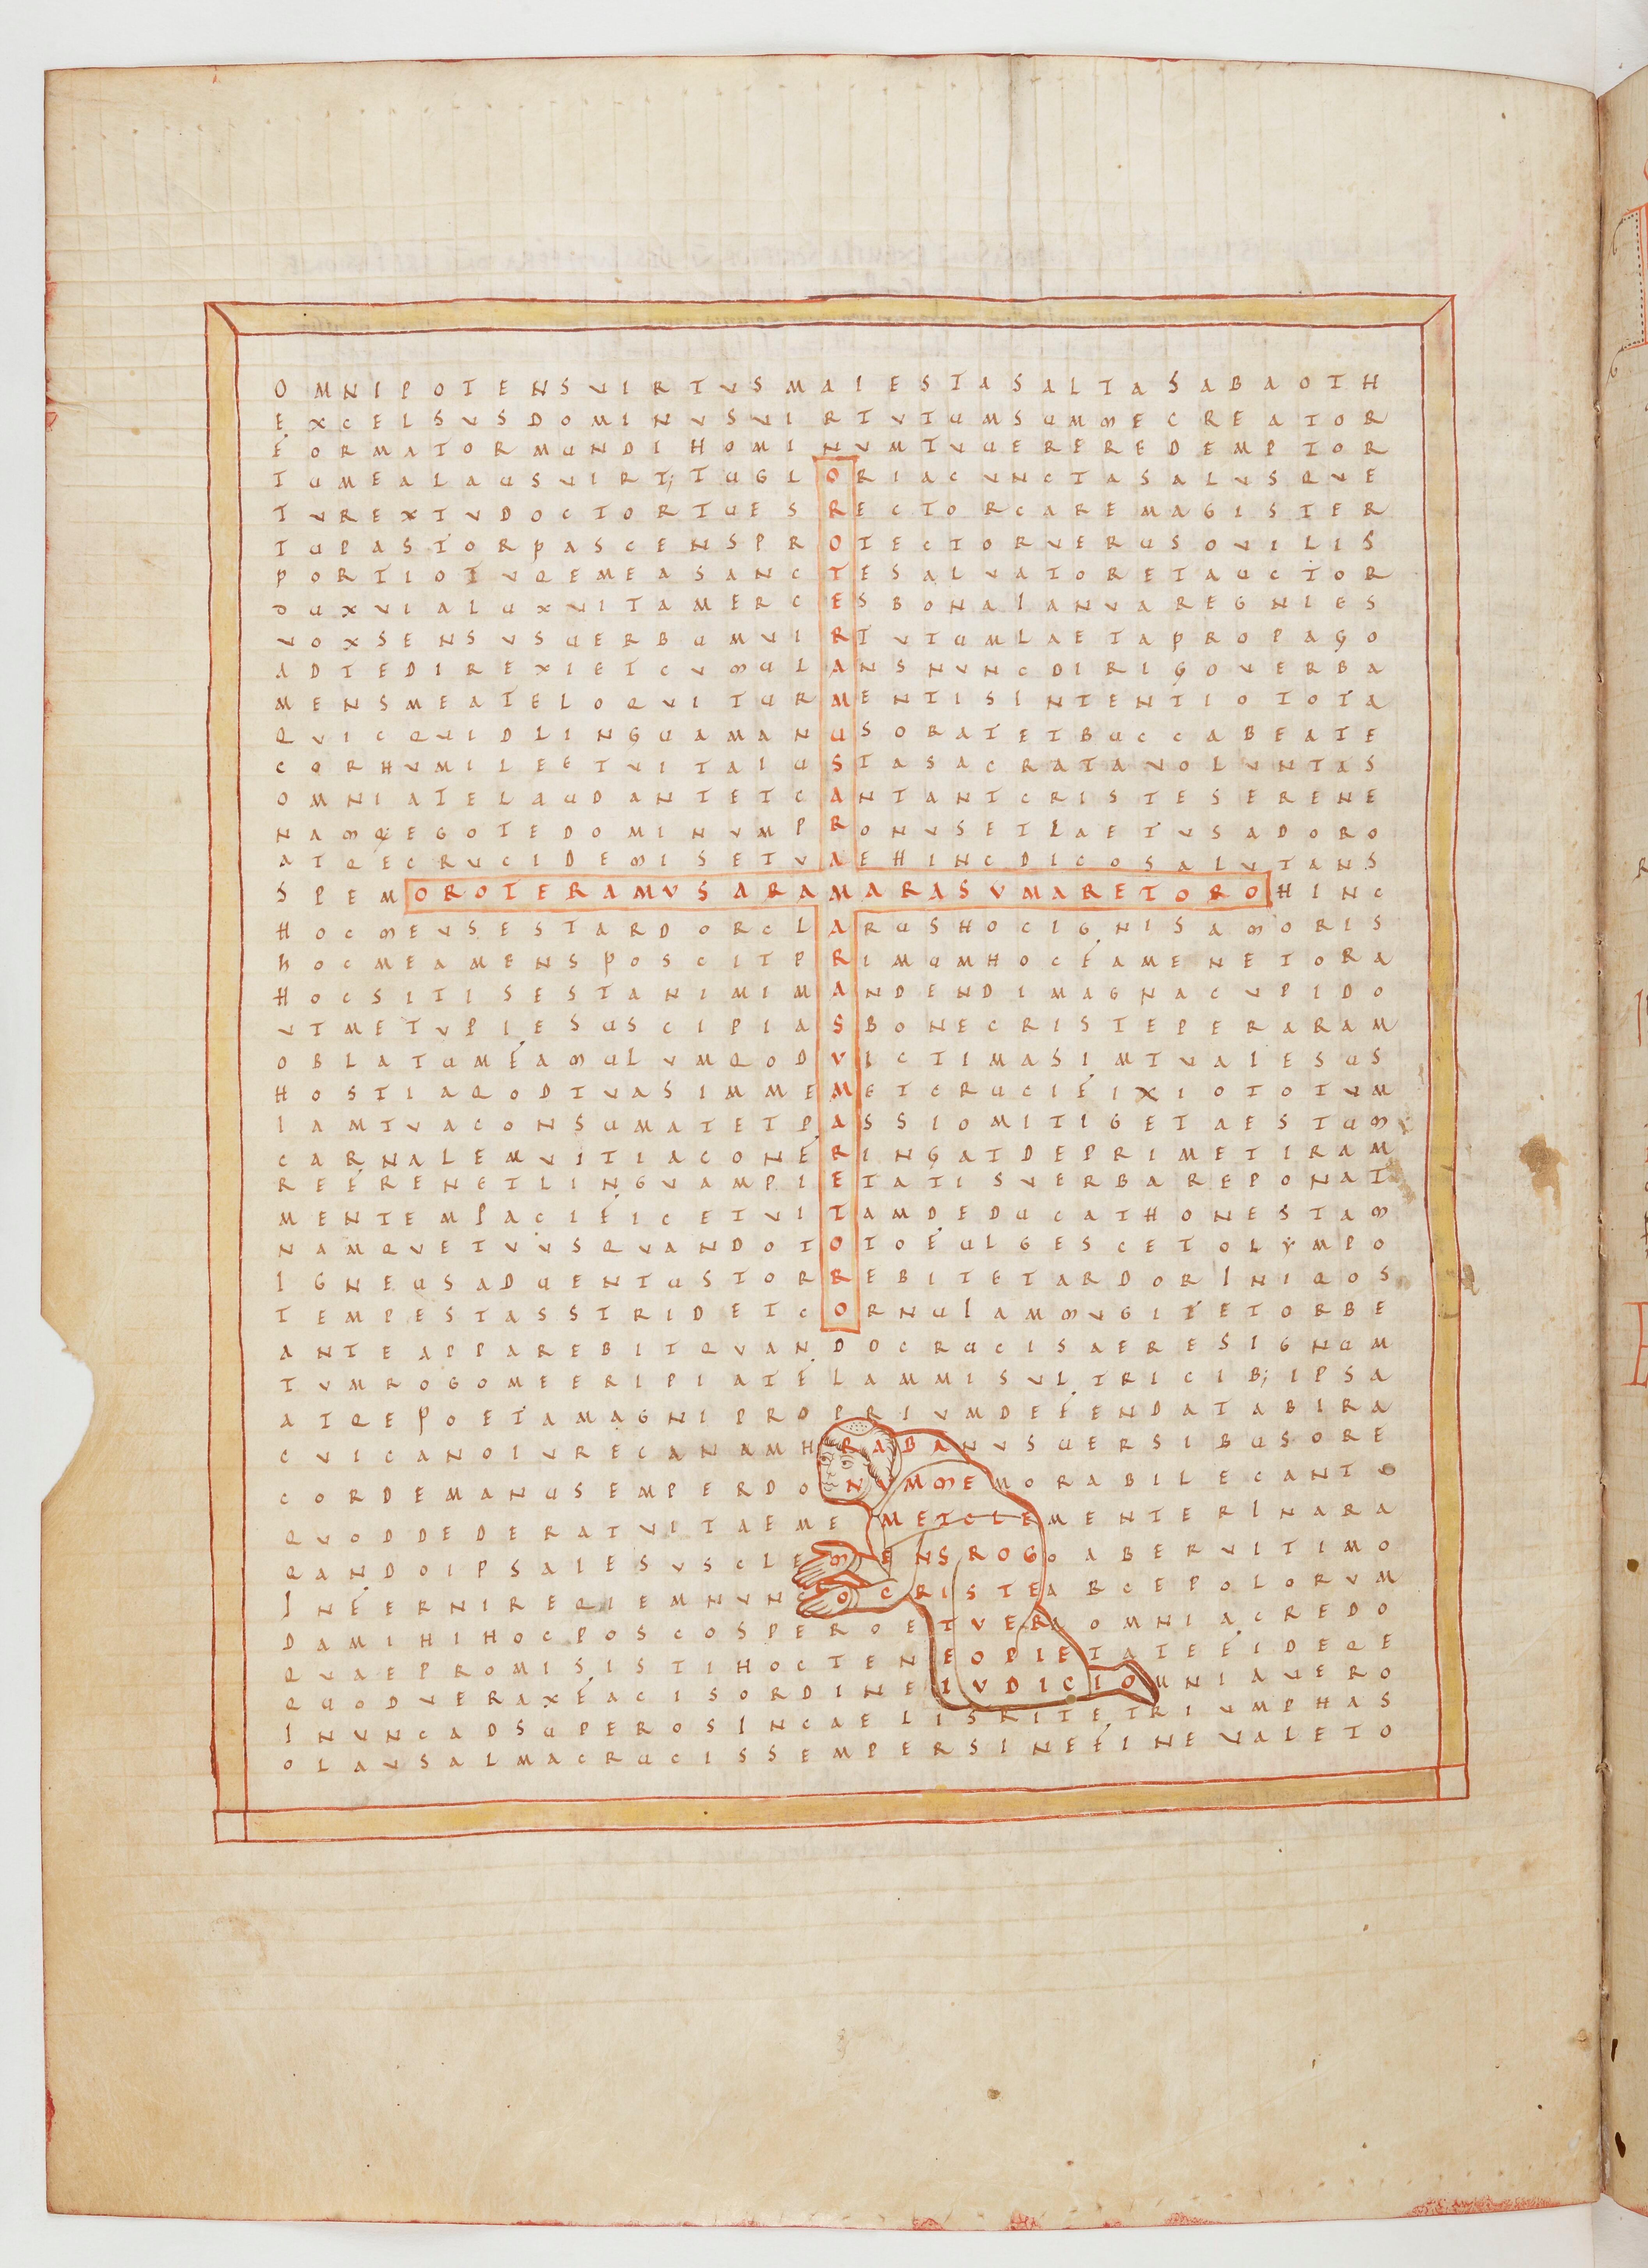 OMNIPOTENSVIRTVSMAIESTASALTASABAOTH
EXCELSVSDOMINVSVIRTVTUMSUMMECREATOR
FORMATORMUNDIHOMINVMTVUEREREDEMPTOR
TUMEALAUSVIRT;TUGLORIACVNCTASALVSQVE
TVREXTVDOCTORTUESRECTORCAREMAGISTER
TUPASTORPASCENSPROTECTORVERUSOVILIS
PORTIOTVQEMEASANCTESALVATORETAUCTOR
DUXVIALUXVITAMERCESBONAIANVAREGNIES
VOXSENSVSUERBUMVIRTVTUMLAETAPROPAGO
ADTEDIREXIETCVMULANSNVNCDIRIGOVERBA
MENSMEATELOQVITURMENTISINTENTIOTOTA
QVICQVIDLINGUAMANUSORATETBUCCABEATE
CORHVMILEETVITAIUSTASACRATAVOLVNTAS
OMNIATELAUDANTETCANTANTCRISTESERENE
NAMQEEGOTEDOMINVMPRONVSETLAETVSADORO
ATQECRVCIDEMISETVAEHINCDICOSALVTANS
SPEMOROTERAMVSARAMARASVMARETOROHINC
HOCMEVSESTARDORCLARUSHOCIGNISAMORIS
HOCMEAMENSPOSCITPRIMUMHOCFAMENETORA
HOCSITISESTANIMIMANDENDIMAGNACVPIDO
VTMETVPIESUSCIPIASBONECRISTEPERARAM
OBLATUMFAMULVMQODVICTIMASIMTVAIESUS
HOSTIAQODTVASIMMEMETCRUCIFIXIOTOTVM
IAMTVACONSUMATETPASSIOMITIGETAESTUM
CARNALEMVITIACONFRINGATDEPRIMETIRAM
REFRENETLINGVAMPIETATISVERBAREPONAT
MENTEMPACIFICETVITAMDEDUCATHONESTAM
NAMQVETVVSQVANDOTOTOFULGESCETOLYMPO
IGNEUSADUENTUSTORREBITETARDORINIQOS
TEMPESTASSTRIDETCORNUIAMMVGITETORBE
ANTEAPPAREBITQVANDOCRUCISAERESIGNUM
TVMROGOMEERIPIATFLAMMISVLTRICIB;IPSA
ATQEPOETAMAGNIPROPRIVMDEFENDATABIRA
CVICANOIVRECANAMHRABANVSUERSIBUSORE
CORDEMANUSEMPERDONVMMEMORABILECANTV
QVODDEDERATVITAEMEMETCLEMENTERINARA
QANDOIPSAIESVSCLEMENSROGOABERVITIMO
INFERNIREQIEMNVNCOCRISTEABCEPOLORVM
DAMIHIHOCPOSCOSPEROETVERAOMNIACREDO
QVAEPROMISISTIHOCTENEOPIETATEFIDEQE
QUODVERAXFACISORDINEIVDICIOUNIAVERO
INVNCADSUPEROSINCAELISRITETRIVMPHAS
OLAVSALMACRUCISSEMPERSINEFINEVALETO